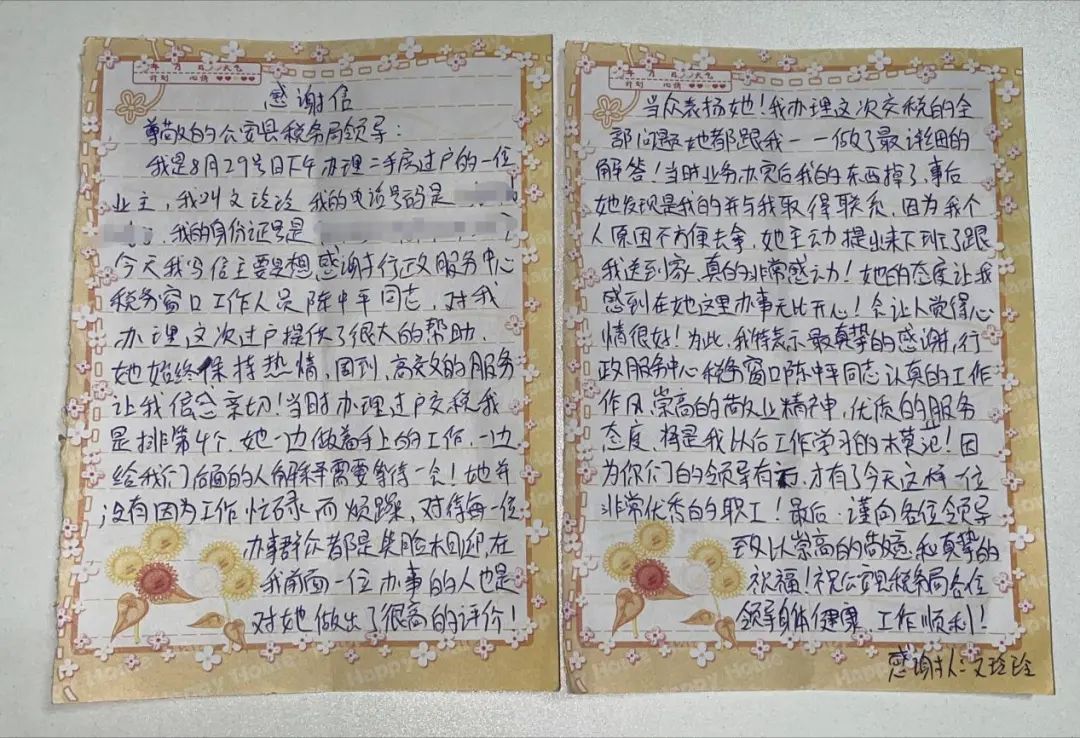 年 月 日 天气
计划 心情
感谢信
尊敬的公安县税务局领导：
我是8月29号日下午办理二手房过户的一位
业主，我叫文玲玲 我的电话号码是
，我的身份证号是
今天我写信主要是想感谢行政服务中心
税务窗口工作人员陈中平同志，对我
办理这次过户提供了很大的帮助.
她始终保持热情，周到，高效的服务
让我倍念亲切！当时办理过户交税我
是排第4个，她一边做着手上的工作，一边
给我们后面的人解释需要等待一会！她并
没有因为工作忙碌而烦躁，对待每一位
办事群众都是笑脸相迎，在
我前面一位办事的人也是
对她做出了很高的评价！
Happy Home
年 月 日 天气
计划 心情
当众表扬她！我办理这次交税的全
部问题她都跟我一一做了最详细的
解答！当时业务办完后我的东西掉了，事后
她发现是我的并与我取得联系，因为我个
人原因不方便去拿，她主动提出来下班了跟
我送到家，真的非常感动！她的态度让我
感到在她这里办事无比开心！会让人觉得心
情很好！为此，我特表示最真挚的感谢，行
政服务中心税务窗口陈中平同志认真的工作
作风，崇高的敬业精神，优质的服务
态度，将是我以后工作学习的木莫记！因
为你们的领导有方，才有了今天这样一位
非常优秀的职工！最后，谨向各位领导
致以崇高的敬意和真挚的
祝福！祝公安县税务局各位
领导身体健康 工作顺利！
Happy Home
感谢人：文玲玲